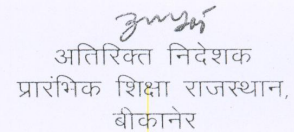 अतिरिक्त निदेशक
प्रारंभिक शिक्षा राजस्थान,
बीकानेर